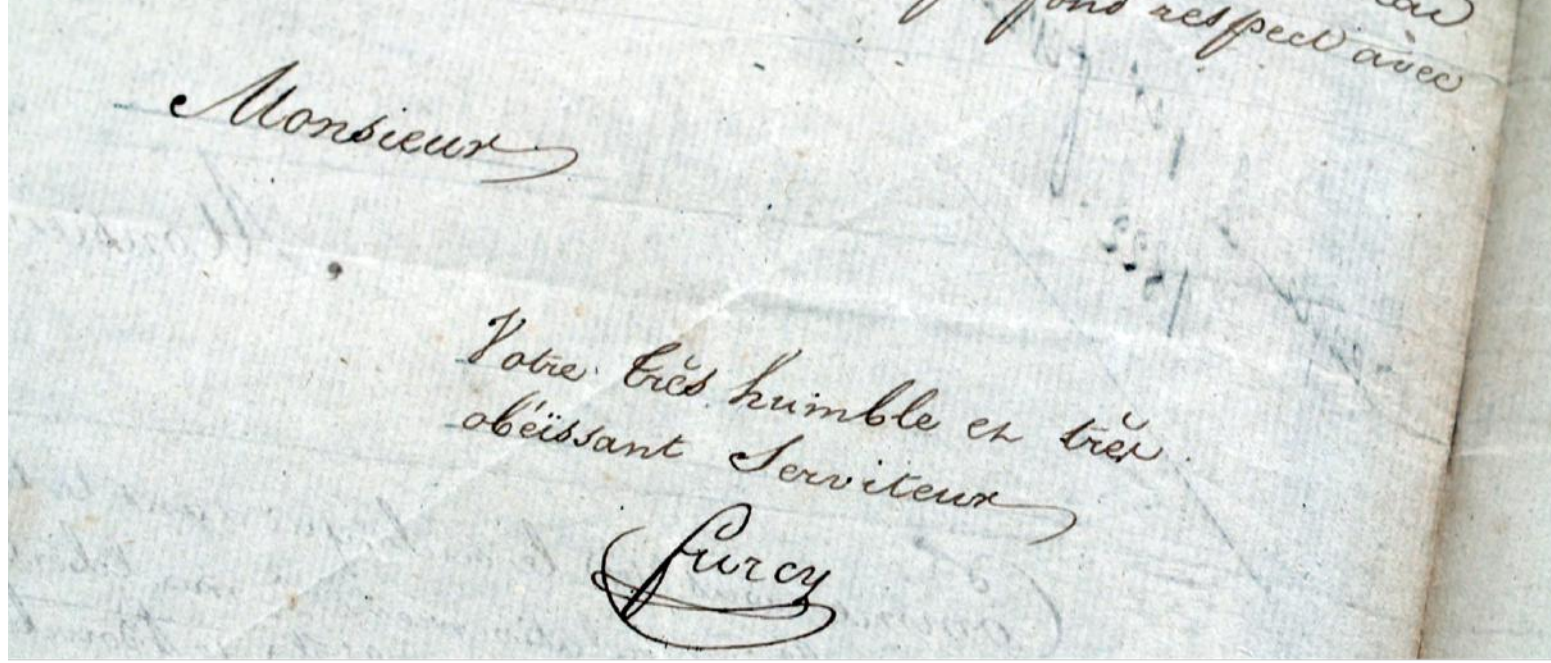 fond respect avec
Monsieur
Votre très humble et très
obéïssant Serviteur
Furcy